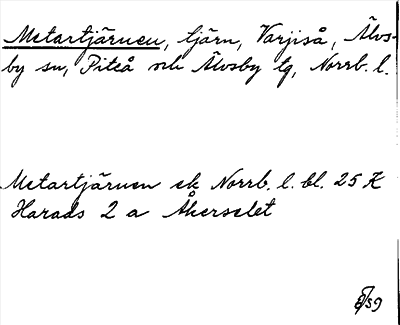 Metartjärnen, tjärn, Varjiså, Älvs-
by sn, Piteå och Älvsby tg, Norrb. l.
Metartjärnen ek Norrb. l. bl. 25 K
Harads 2 a Åkerselet
/59